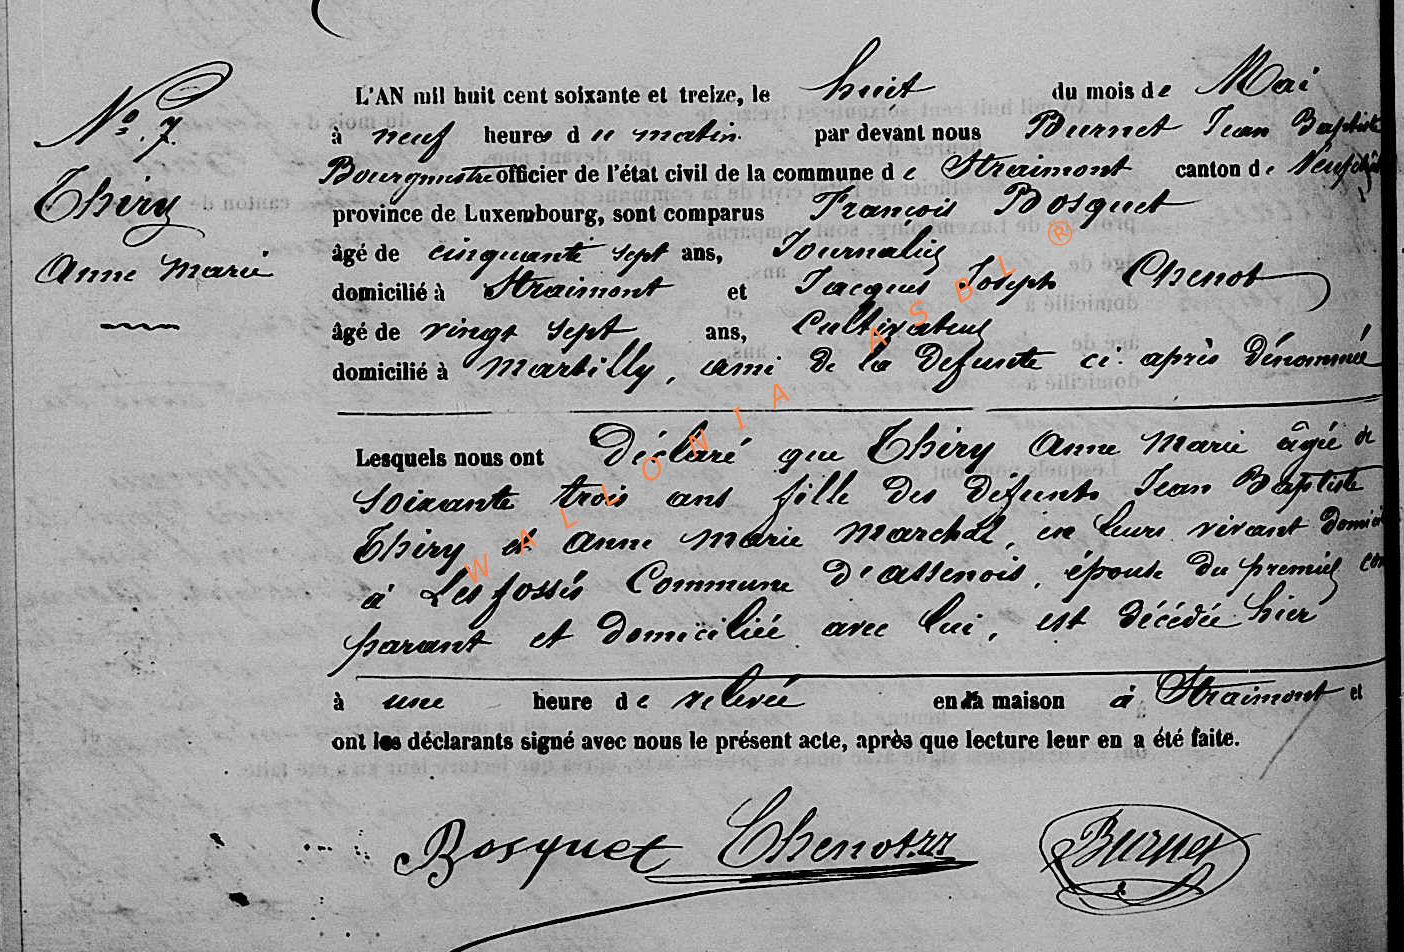 Nº 7.
Thiry
Anne Marie
L'AN mil huit cent soixante et treize, le huit du mois de Mai
à neuf heures du matin. par devant nous Burnet Jean Baptiste
Bourgmestre officier de l'état civil de la commune de Straimont canton de Neufchâ
province de Luxembourg, sont comparus François Bosquet
âgé de cinquante sept ans, Journalier
domicilié à Straimont et Jacques Joseph Chenot
âgé de vingt sept ans, Cultivateur
domicilié à Martilly, ami de la défunte ci-après dénommée
Lesquels nous ont Déclaré que Thiry Anne Marie âgée de
soixante trois ans fille des défunts Jean Baptiste
Thiry et Anne Marie Marchal, en leurs vivant domici
à Les fossés Commune d'assenois, épouse du premier com
parant et domiciliée avec lui, est décédée hier
à une heure de relevée en la maison à Straimont et
ont les déclarants signé avec nous le présent acte, après que lecture leur en a été faite.
Bosquet Chenot Burnet
WALLONIA ASBL ®